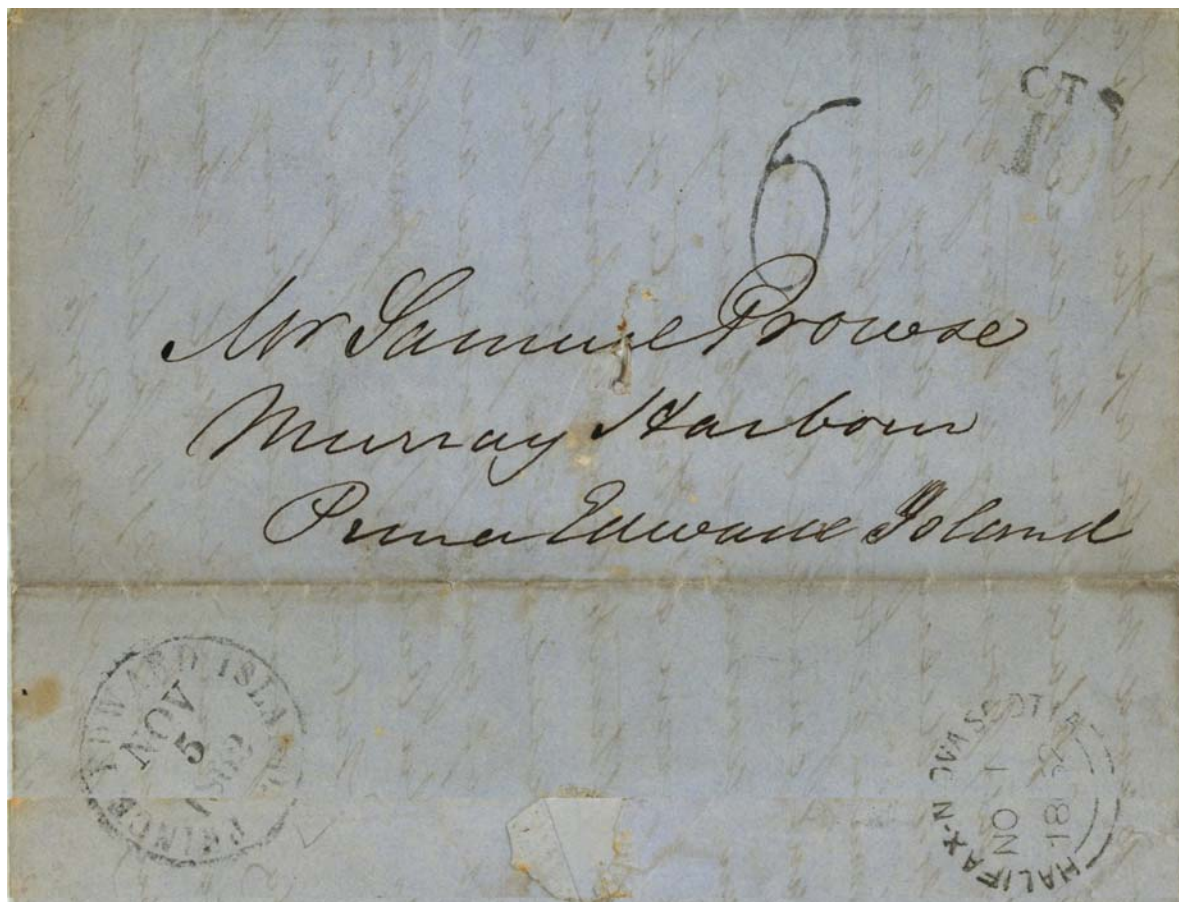 CTS
6
Mr Samuel Prowse
Murray Harbour
Prince Edward Island
PRINCE EDWARD ISLAND
NOV
5
HALIFAX-NOVA SCOTIA
NO 1
18